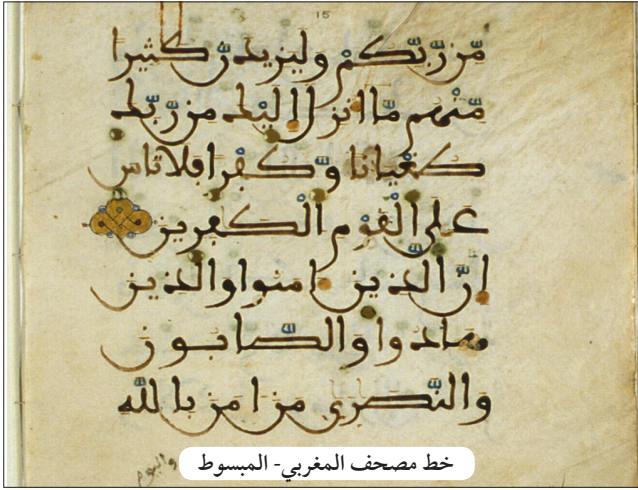 15
مّن رَّبِّكُمْ وليزيدنّ كثيرا
مّنهم مّا انزل اليْك من رّبّك
طغْيانا وّكفْرا فلا تاس
على الْقوْم الْكفرين
انّ الذين امنوا والذين
هادوا والصّابون
والنّصرى من امن بالله
واليوم
خط مصحف المغربي- المبسوط